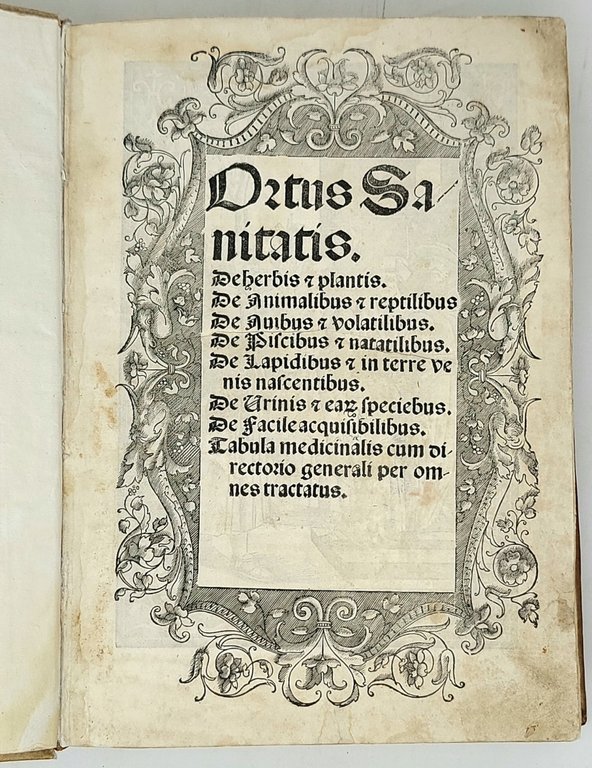 Ortus Sa⸗
nitatis.
De herbis ⁊ plantis.
De Animalibus ⁊ reptilibus
De Auibus ⁊ volatilibus.
De Piſcibus ⁊ natatilibus.
De Lapidibus ⁊ in terre ve
nis naſcentibus.
De Urinis ⁊ eaꝝ ſpeciebus.
De Facile acquiſibilibus.
Tabula medicinalis cum di-
rectorio generali per om-
nes tractatus.